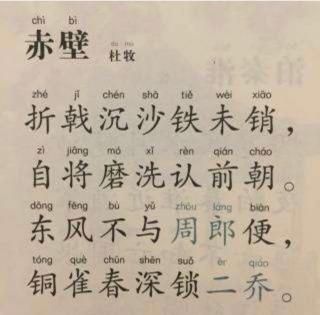 chì bì
赤壁 dù mù
杜牧
zhé jǐ chén shā tiě wèi xiāo
折戟沉沙铁未销，
zì jiāng mó xǐ rèn qián cháo
自将磨洗认前朝。
dōng fēng bù yǔ zhōu láng biàn
东风不与周郎便，
tóng què chūn shēn suǒ èr qiáo
铜雀春深锁二乔。